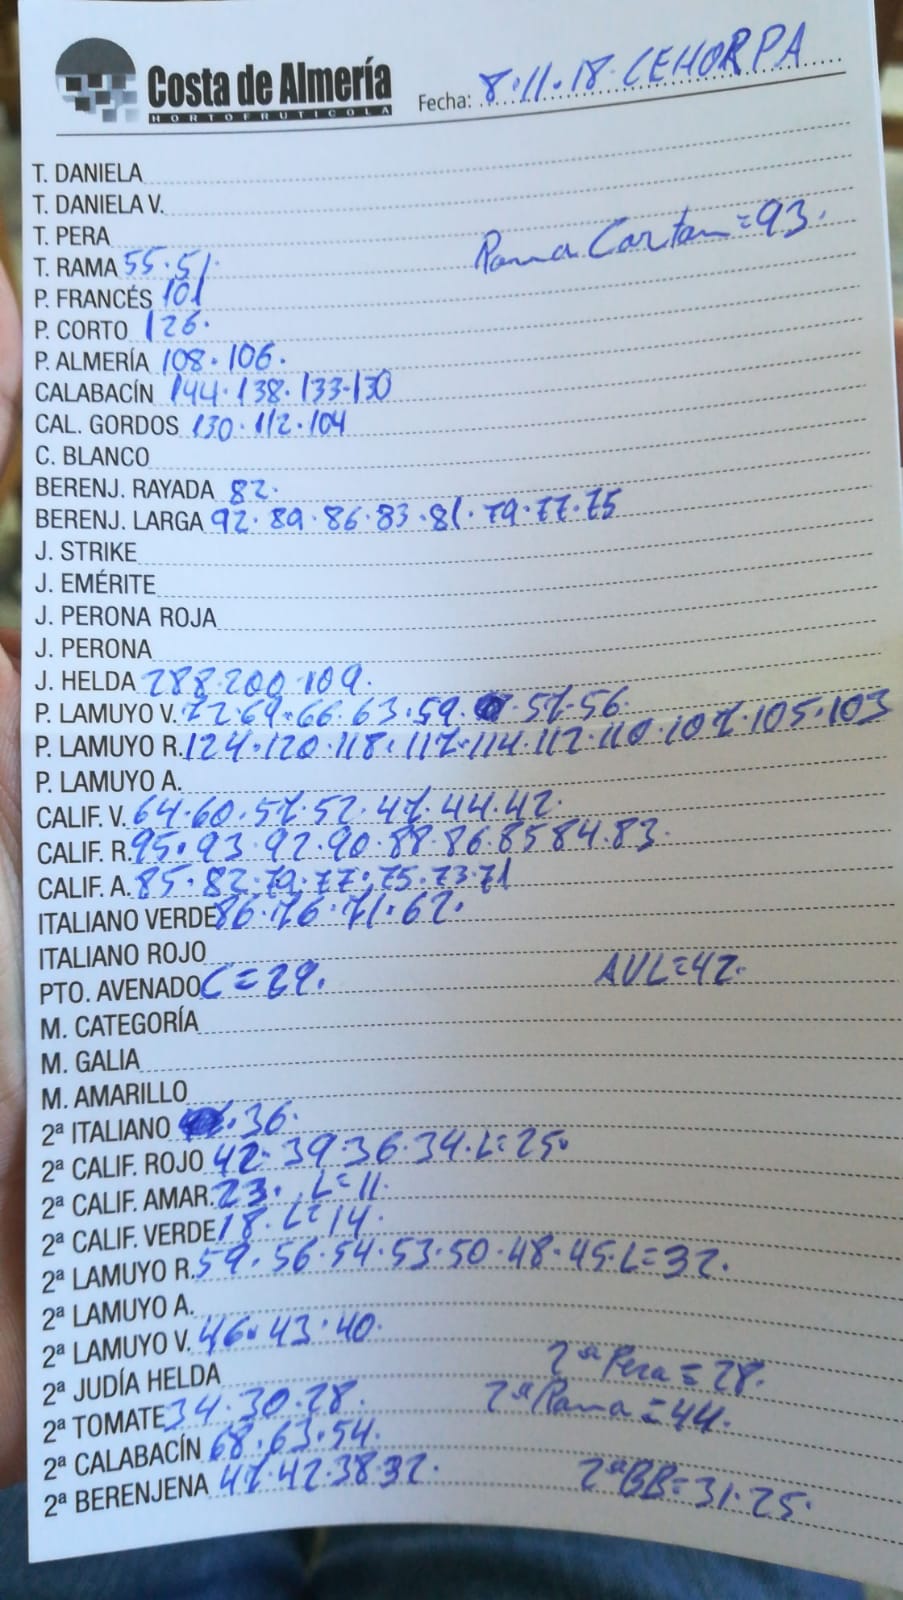 Costa de Almería
HORTOFRUTICOLA
Fecha: 8.11.18 CEHORPA
T. DANIELA
T. DANIELA V.
T. PERA
Rama Carton = 93.
T. RAMA 55.51.
P. FRANCÉS 101
P. CORTO 126.
P. ALMERÍA 108.106.
CALABACÍN 144.138.133-130
CAL. GORDOS 130.112.104
C. BLANCO
BERENJ. RAYADA 82.
BERENJ. LARGA 92.89.86.83.81.79.77.75
J. STRIKE
J. EMÉRITE
J. PERONA ROJA
J. PERONA
J. HELDA 288.200.109.
P. LAMUYO V. 72.69.66.63.59. .57.56.
P. LAMUYO R. 124.120.118.117.114.112.110.107.105.103
P. LAMUYO A.
CALIF. V. 64.60.57.52.47.44.42.
CALIF. R. 95.93.92.90.88.86.85 84.83.
CALIF. A. 85.82.79.77.75.73.71
ITALIANO VERDE 86.76.71.62.
ITALIANO ROJO
PTO. AVENADO C=29. AVL=42.
M. CATEGORÍA
M. GALIA
M. AMARILLO
2ª ITALIANO .36.
2ª CALIF. ROJO 42.39.36.34.L=25.
2ª CALIF. AMAR. 23. L=11.
2ª CALIF. VERDE 18. L=14.
2ª LAMUYO R. 59.56.54.53.50.48.45.L=32.
2ª LAMUYO A.
2ª LAMUYO V. 46.43.40.
2ª JUDÍA HELDA 2ª Pera = 28.
2ª TOMATE 34.30.28. 2ª Rama = 44.
2ª CALABACÍN 68.63.54.
2ª BERENJENA 47.42.38.32. 2ª BB=31.25.